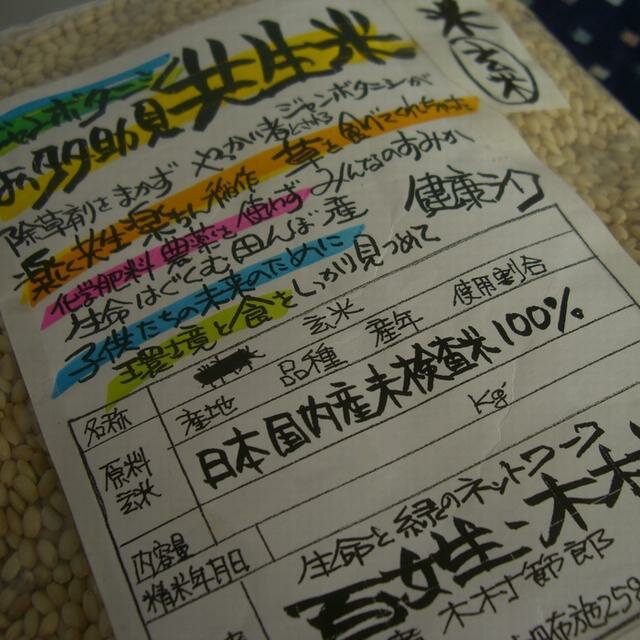 ジャンボタニシ
お多助見共生米
米
玄米
除草剤をまかず やっかい者といわれるジャンボタニシが
草を食べてくれちゃいます
楽に共生 楽ちん稲作
化学肥料 農薬を使わず みんなのすみか
生命はぐくむ田んぼ 産 健康
子供たちの未来のために
環境と食としっかり見つめて
名称 玄米
原料玄米 産地 品種 産年 使用割合
日本国内産未検査米100%
内容量 Kg
精米年月日
生命と緑のネットワーク
百姓、木村
木村節郎
258